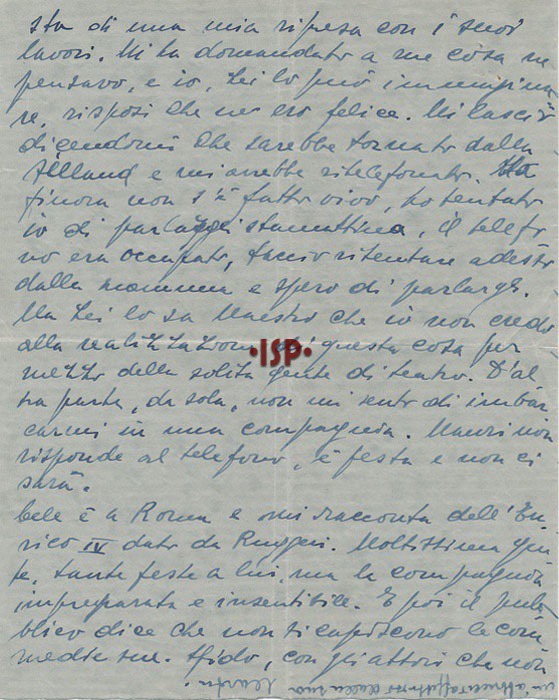 sta di una mia ripresa con i suoi
lavori. Mi ha domandato a me cosa ne
pensavo, e io, Lei lo può immagina
re, risposi che ne ero felice. Mi lasciò
dicendomi che sarebbe tornato dalla
e mi avrebbe ritelefonato.
finora non s'è fatto vivo, ho tentato
io di parlargli stamattina, il telefo
no era occupato, faccio ritentare adesso
dalla mamma e spero di parlargli.
Ma Lei lo sa Maestro che io non credo
alla realizzazione di questa cosa per
mezzo della solita gente di teatro. D'al
tra parte, da sola, non mi sento di imbar
carmi in una compagnia. Mauri non
risponde al telefono, è festa e non ci
sarà.
Cele è a Roma e mi racconta dell'En
rico IV dato da Ruggeri. Moltissima gen
te, tante feste a lui, ma la compagnia
impreparata e insensibile. E poi il pub
blico dice che non si capiscono le com
medie sue. Sfido, con gli attori che non
Marta
·ISP·